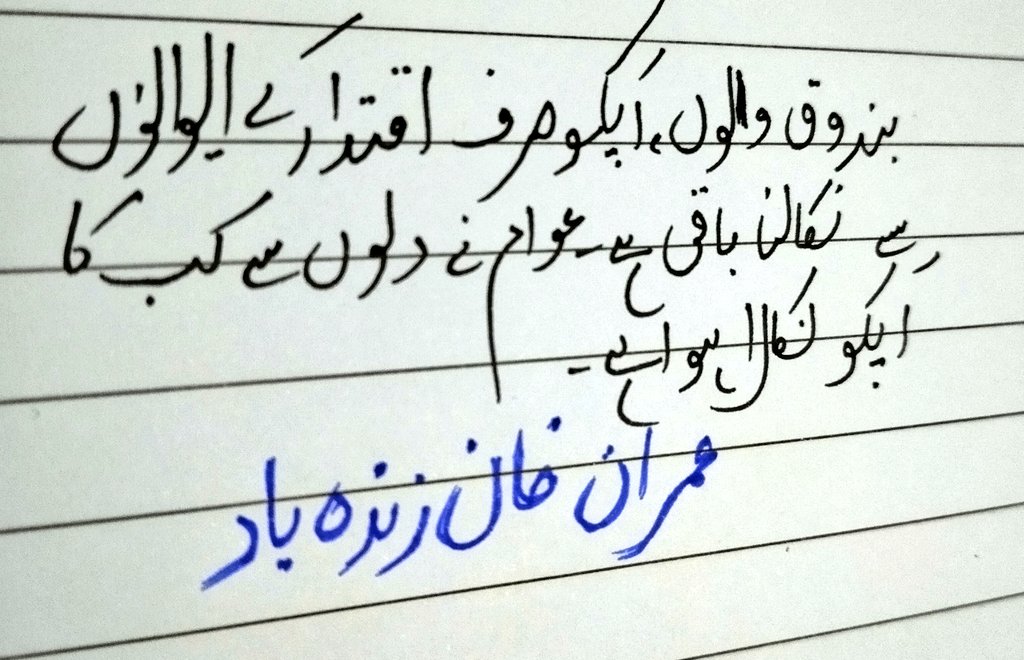 بندوق والوں، آپکو صرف اقتدار کے ایوانوں
سے نکالنا باقی ہے۔ عوام نے دلوں سے کب کا
آپکو نکالا ہوا ہے۔
عمران خان زندہ باد